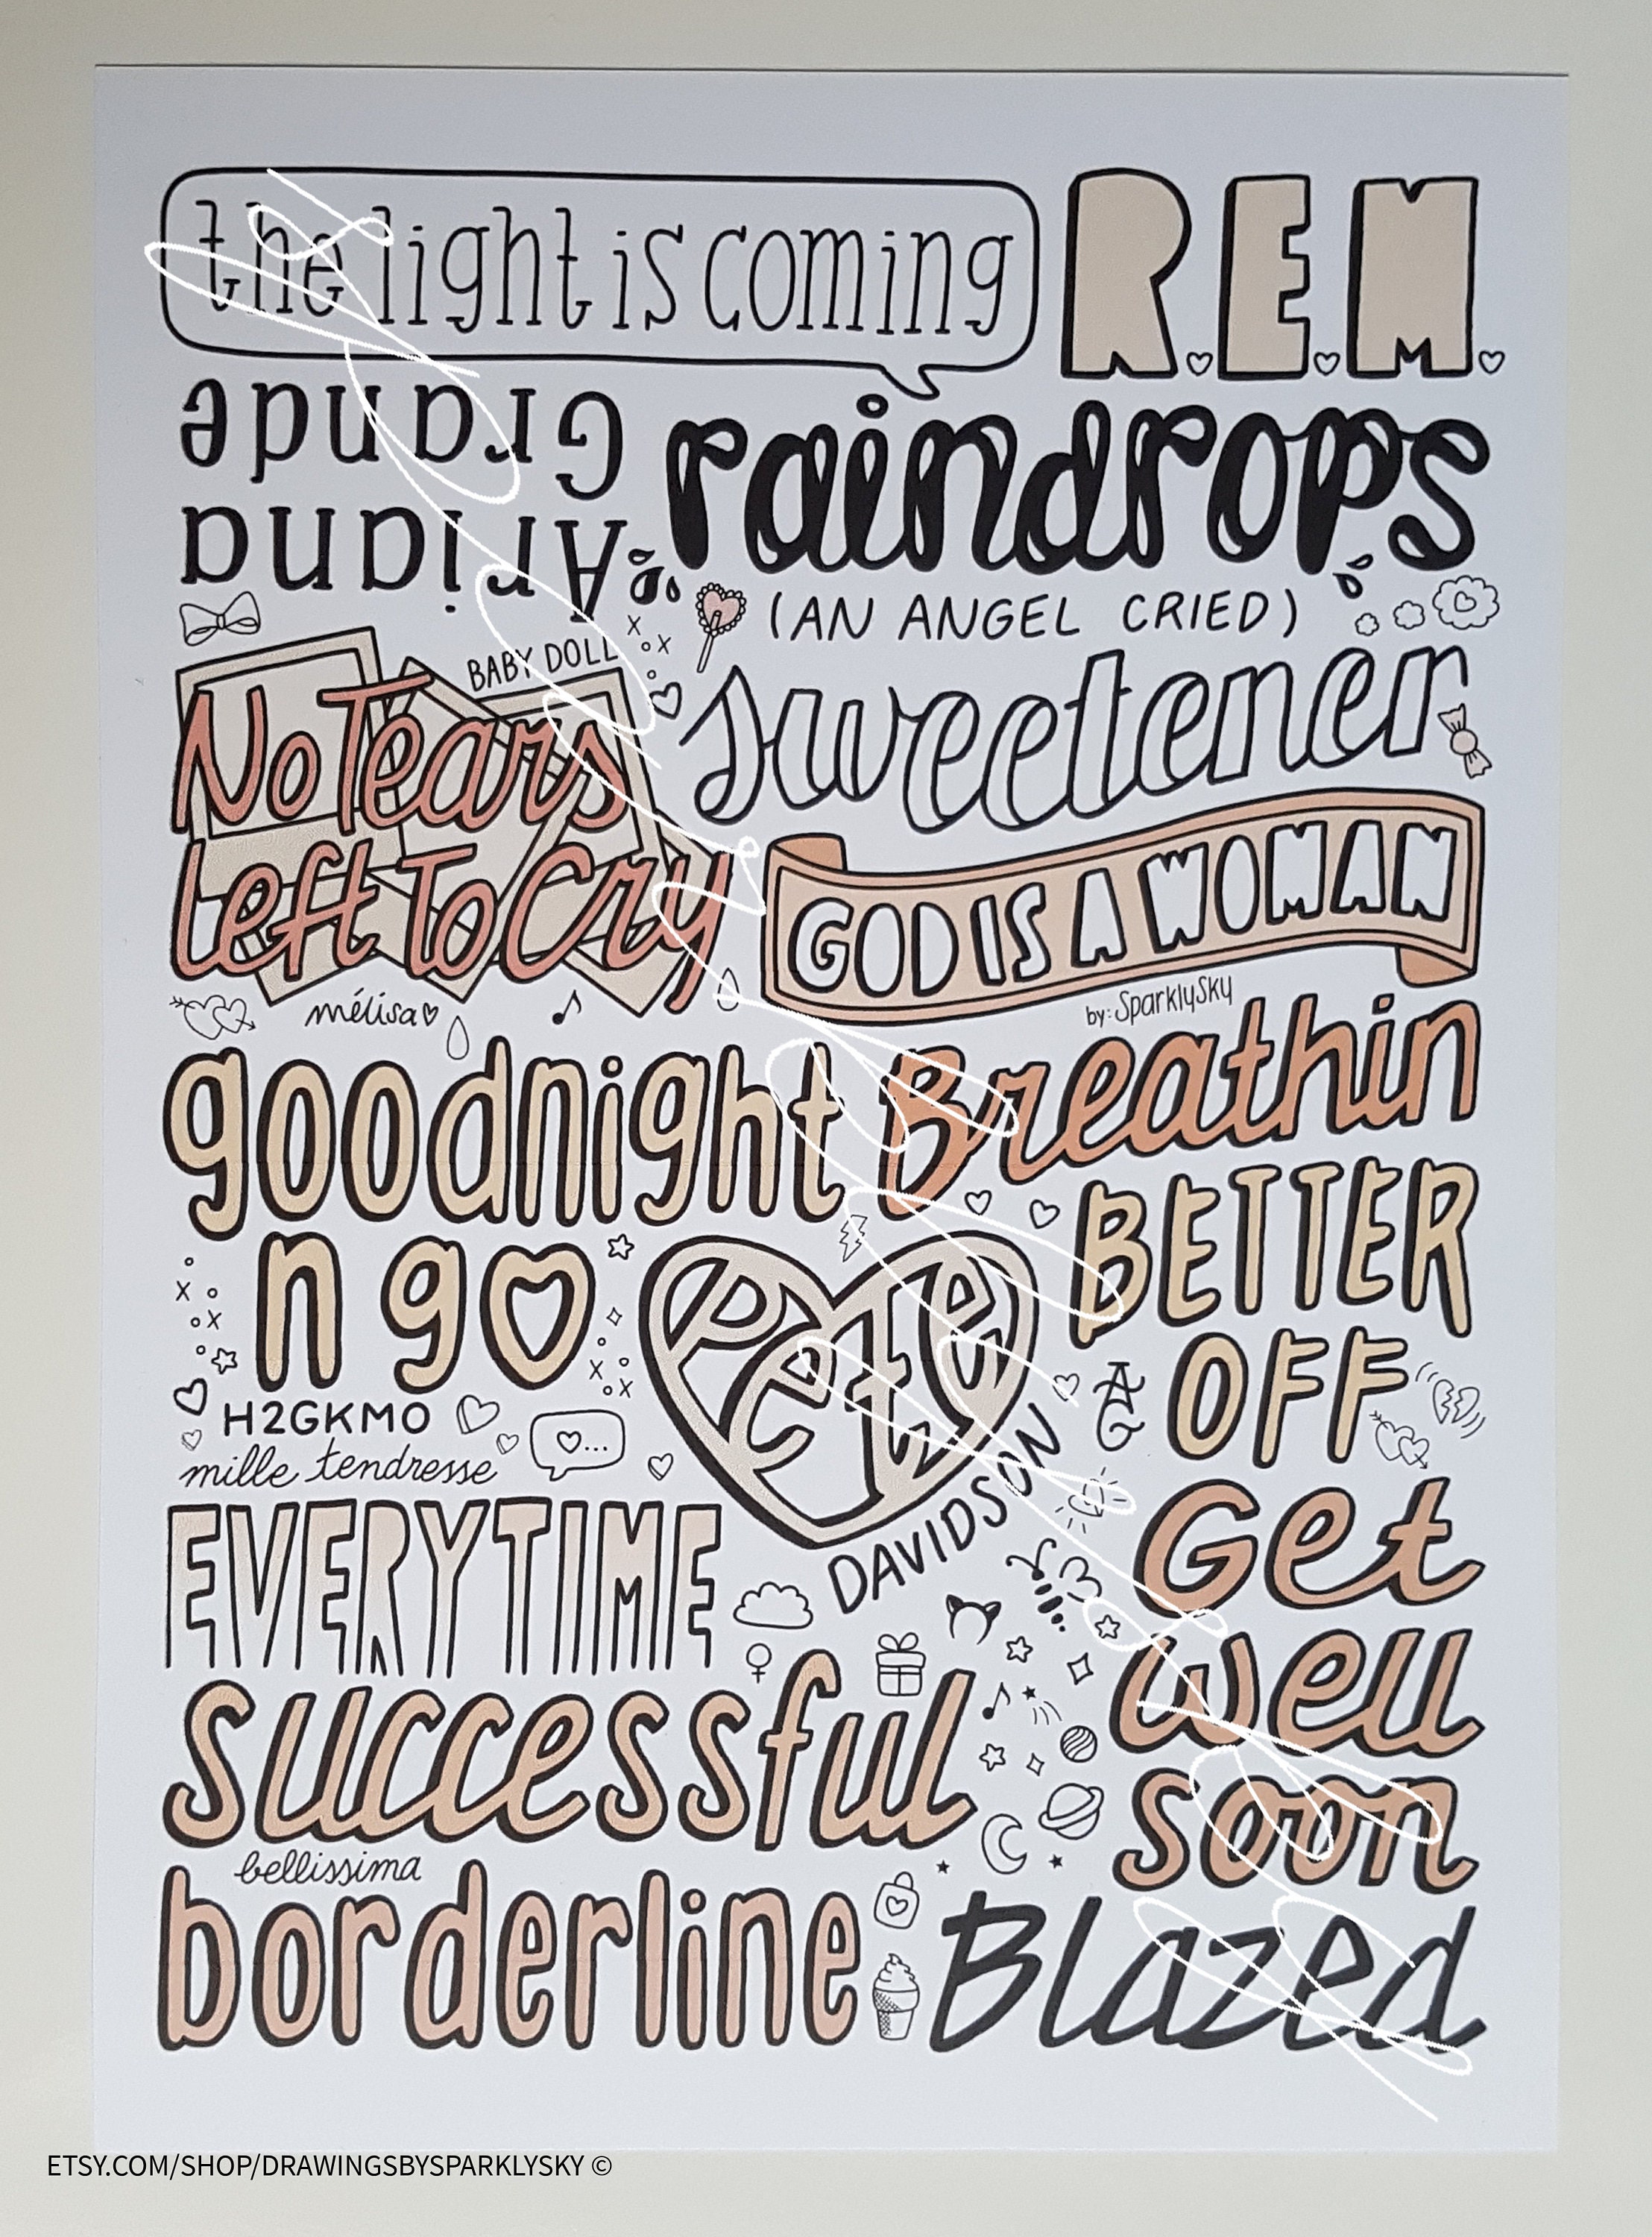 the light is coming
R.E.M.
Ariana
Grande
raindrops
(AN ANGEL CRIED)
BABY DOLL
No Tears
Left To Cry
sweetener
GOD IS A WOMAN
mélisa
by: SparklySky
goodnight
n go
Breathin
BETTER
OFF
Pete
DAVIDSON
AG
H2GKMO
mille tendresse
EVERYTIME
Get
well
soon
successful
bellissima
borderline
Blazed
ETSY.COM/SHOP/DRAWINGSBYSPARKLYSKY ©